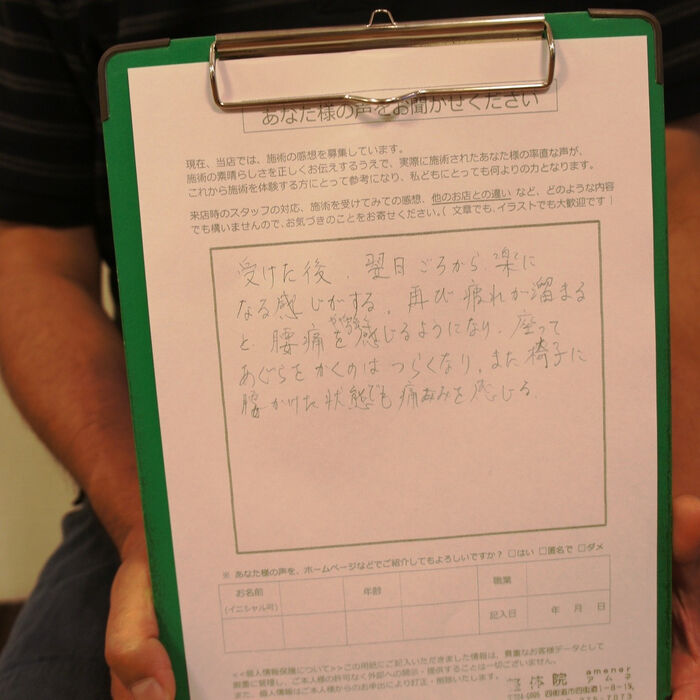 あなた様の声をお聞かせください
現在、当店では、施術の感想を募集しています。
施術の素晴らしさを正しくお伝えするうえで、実際に施術されたあなた様の率直な声が、
これから施術を体験する方にとって参考になり、私どもにとっても何よりの力となります。
来店時のスタッフの対応、施術を受けてみての感想、他のお店との違い など、どのような内容
でも構いませんので、お気づきのことをお寄せください。（ 文章でも、イラストでも大歓迎です）
受けた後、翌日ごろから、楽に
なる感じがする。再び疲れが溜まる
と、腰痛を感じるようになり、座って
あぐらをかくのはつらくなり、また椅子に
腰かけた状態でも痛みを感じる。
※ あなた様の声を、ホームページなどでご紹介してもよろしいですか？ □はい □匿名で □ダメ
お名前 年齢 職業
(イニシャル可) 記入日 年 月 日
<<個人情報保護について>>この用紙にご記入いただきました情報は、貴重なお客様データとして
厳重に管理し、ご本人様の許可なく外部への開示・提供することは一切ございません。
また、個人情報はご本人様からのお申出により訂正・削除いたします。
整体院 amener アムネ
四街道市四街道1-8-15,